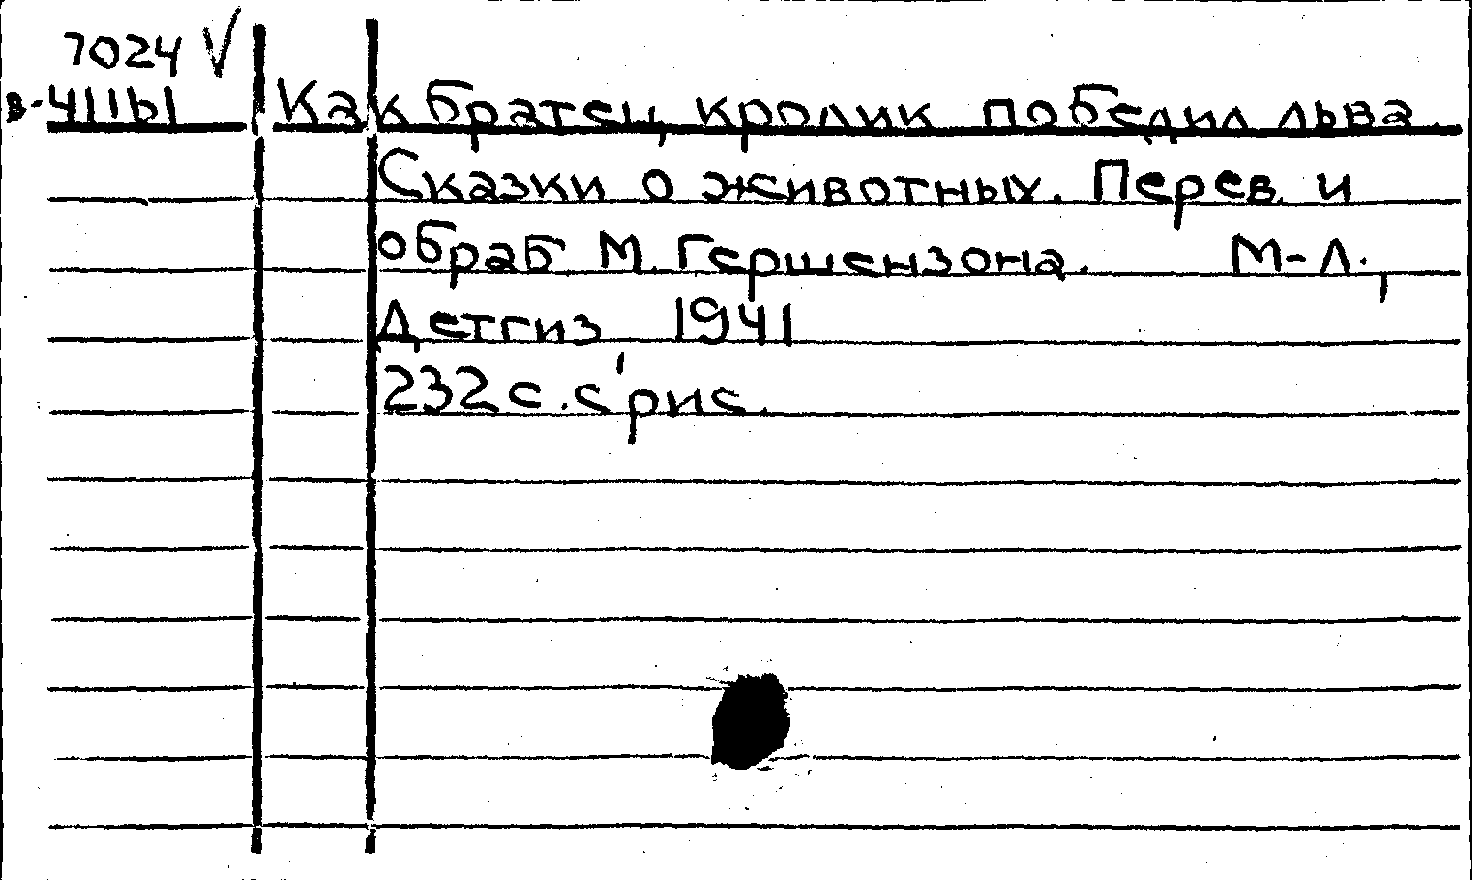 7024 V
в-41161 Как братец кролик победил льва.
Сказки о животных. Перев. и
обраб. М. Гершензона. М-Л.,
Детгиз, 1941
232 с. с рис.